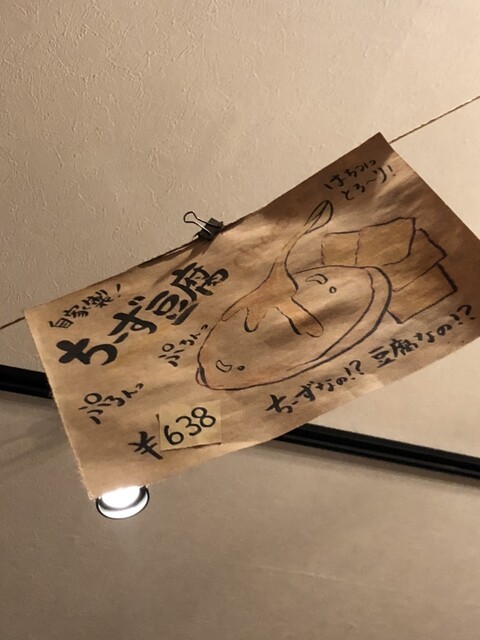 自家製!
ちーず豆腐
ぷるんっ
ぷるんっ
¥638
はちみつ
とろ〜り!
ちーずなの!?豆腐なの!?